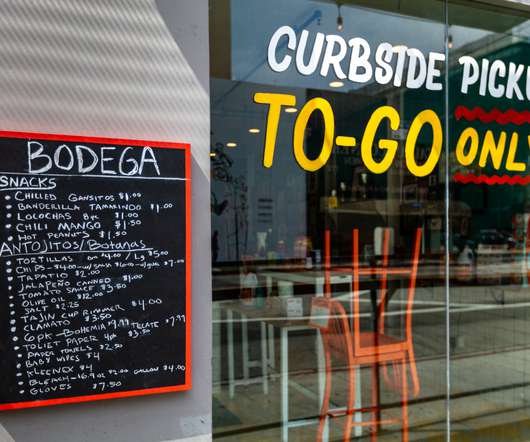 BODEGA
SNACKS
• CHILLED GANSITOS $1.00
• BANDERILLA TAAMINDO $1.00
• LOCOCHAS 8pc $1.00
• CHILI MANGO $1.50
• HOT PEANUTS $1.50
ANTOJITOS/Botanas
• TORTILLAS sm $4.00 / Lg $5.00
• CHIPS - $4.00 - w/ SALSA $6.00 - w/guac $7.00
• TAPATIO $2.00
• JALAPEÑO CANNED $1.00
• TOMATO SAUCE $3.50
• OLIVE OIL $12.00
• SALT $2.25
• TAJIN CUP RIMMER $4.00
• CLAMATO $3.50
• 6pk - BOHEMIA $9.99 TECATE $7.99
• TOLIET PAPER 4pk $3.50
• PAPER TOWELS $2.50
• BABY WIPES $4
• KLEENEX $4
• BLEACH - 16.9 oz $2.00 GALLON $4.00
• GLOVES $7.50
CURBSIDE PICKU
TO-GO ONLY